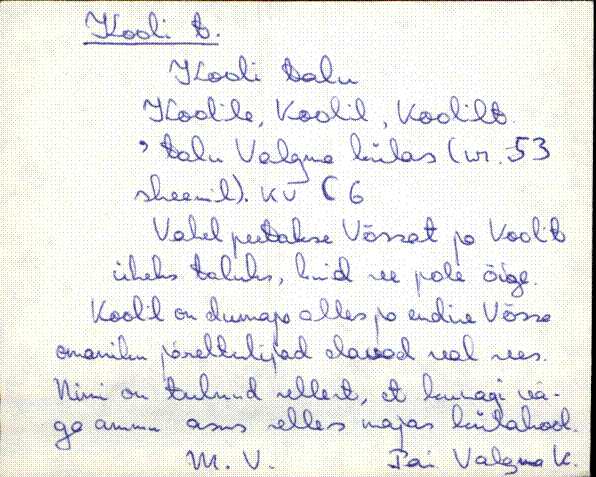 Kooli t.
Kooli talu
Koolile, Koolil, Koolilt
, talu Valgma külas (nr. 53
skeemil). KV C 6
Vahel peetakse Võssat ja Koolit
üheks taluks, kuid see pole õige.
Koolil on elumaja alles ja endise Võssa
omaniku järeltulijad elavad seal sees.
Nimi on tulnud sellest, et kunagi vä-
ga ammu asus selles majas külakool.
M. V. Pai Valgma k.